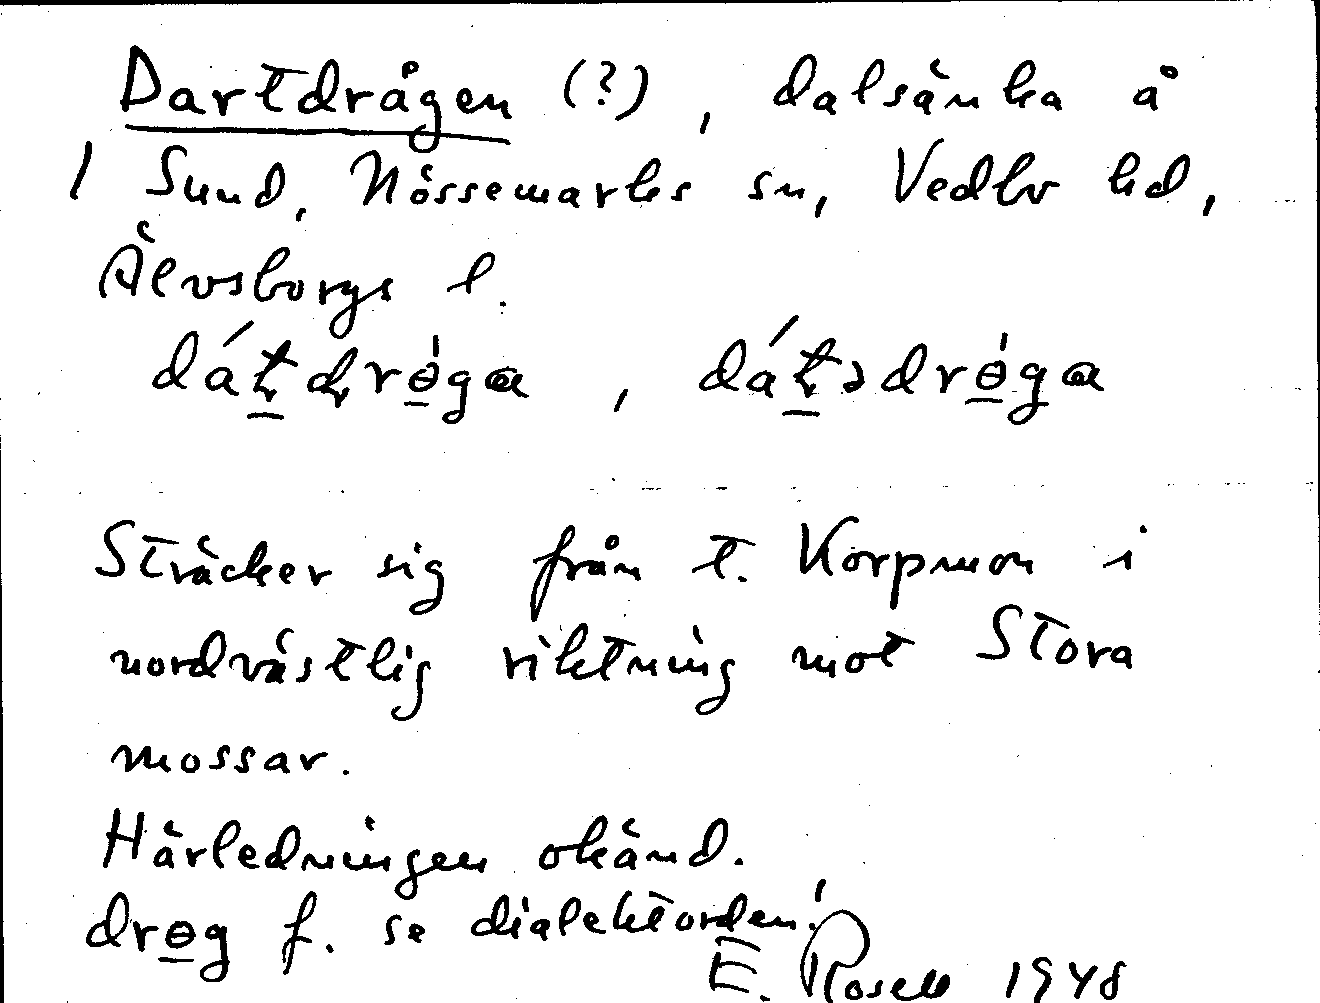 Dartdrågen (?), dalsänka å
1 Sund, Nössemarks sn, Vedbo hd,
Älvsborgs l.
Sträcker sig från t. Korpmon i
nordvästlig riktning mot Stora
mossar.
Härledningen okänd.
drɵg f. se dialektorden!
E. Rosell 1948